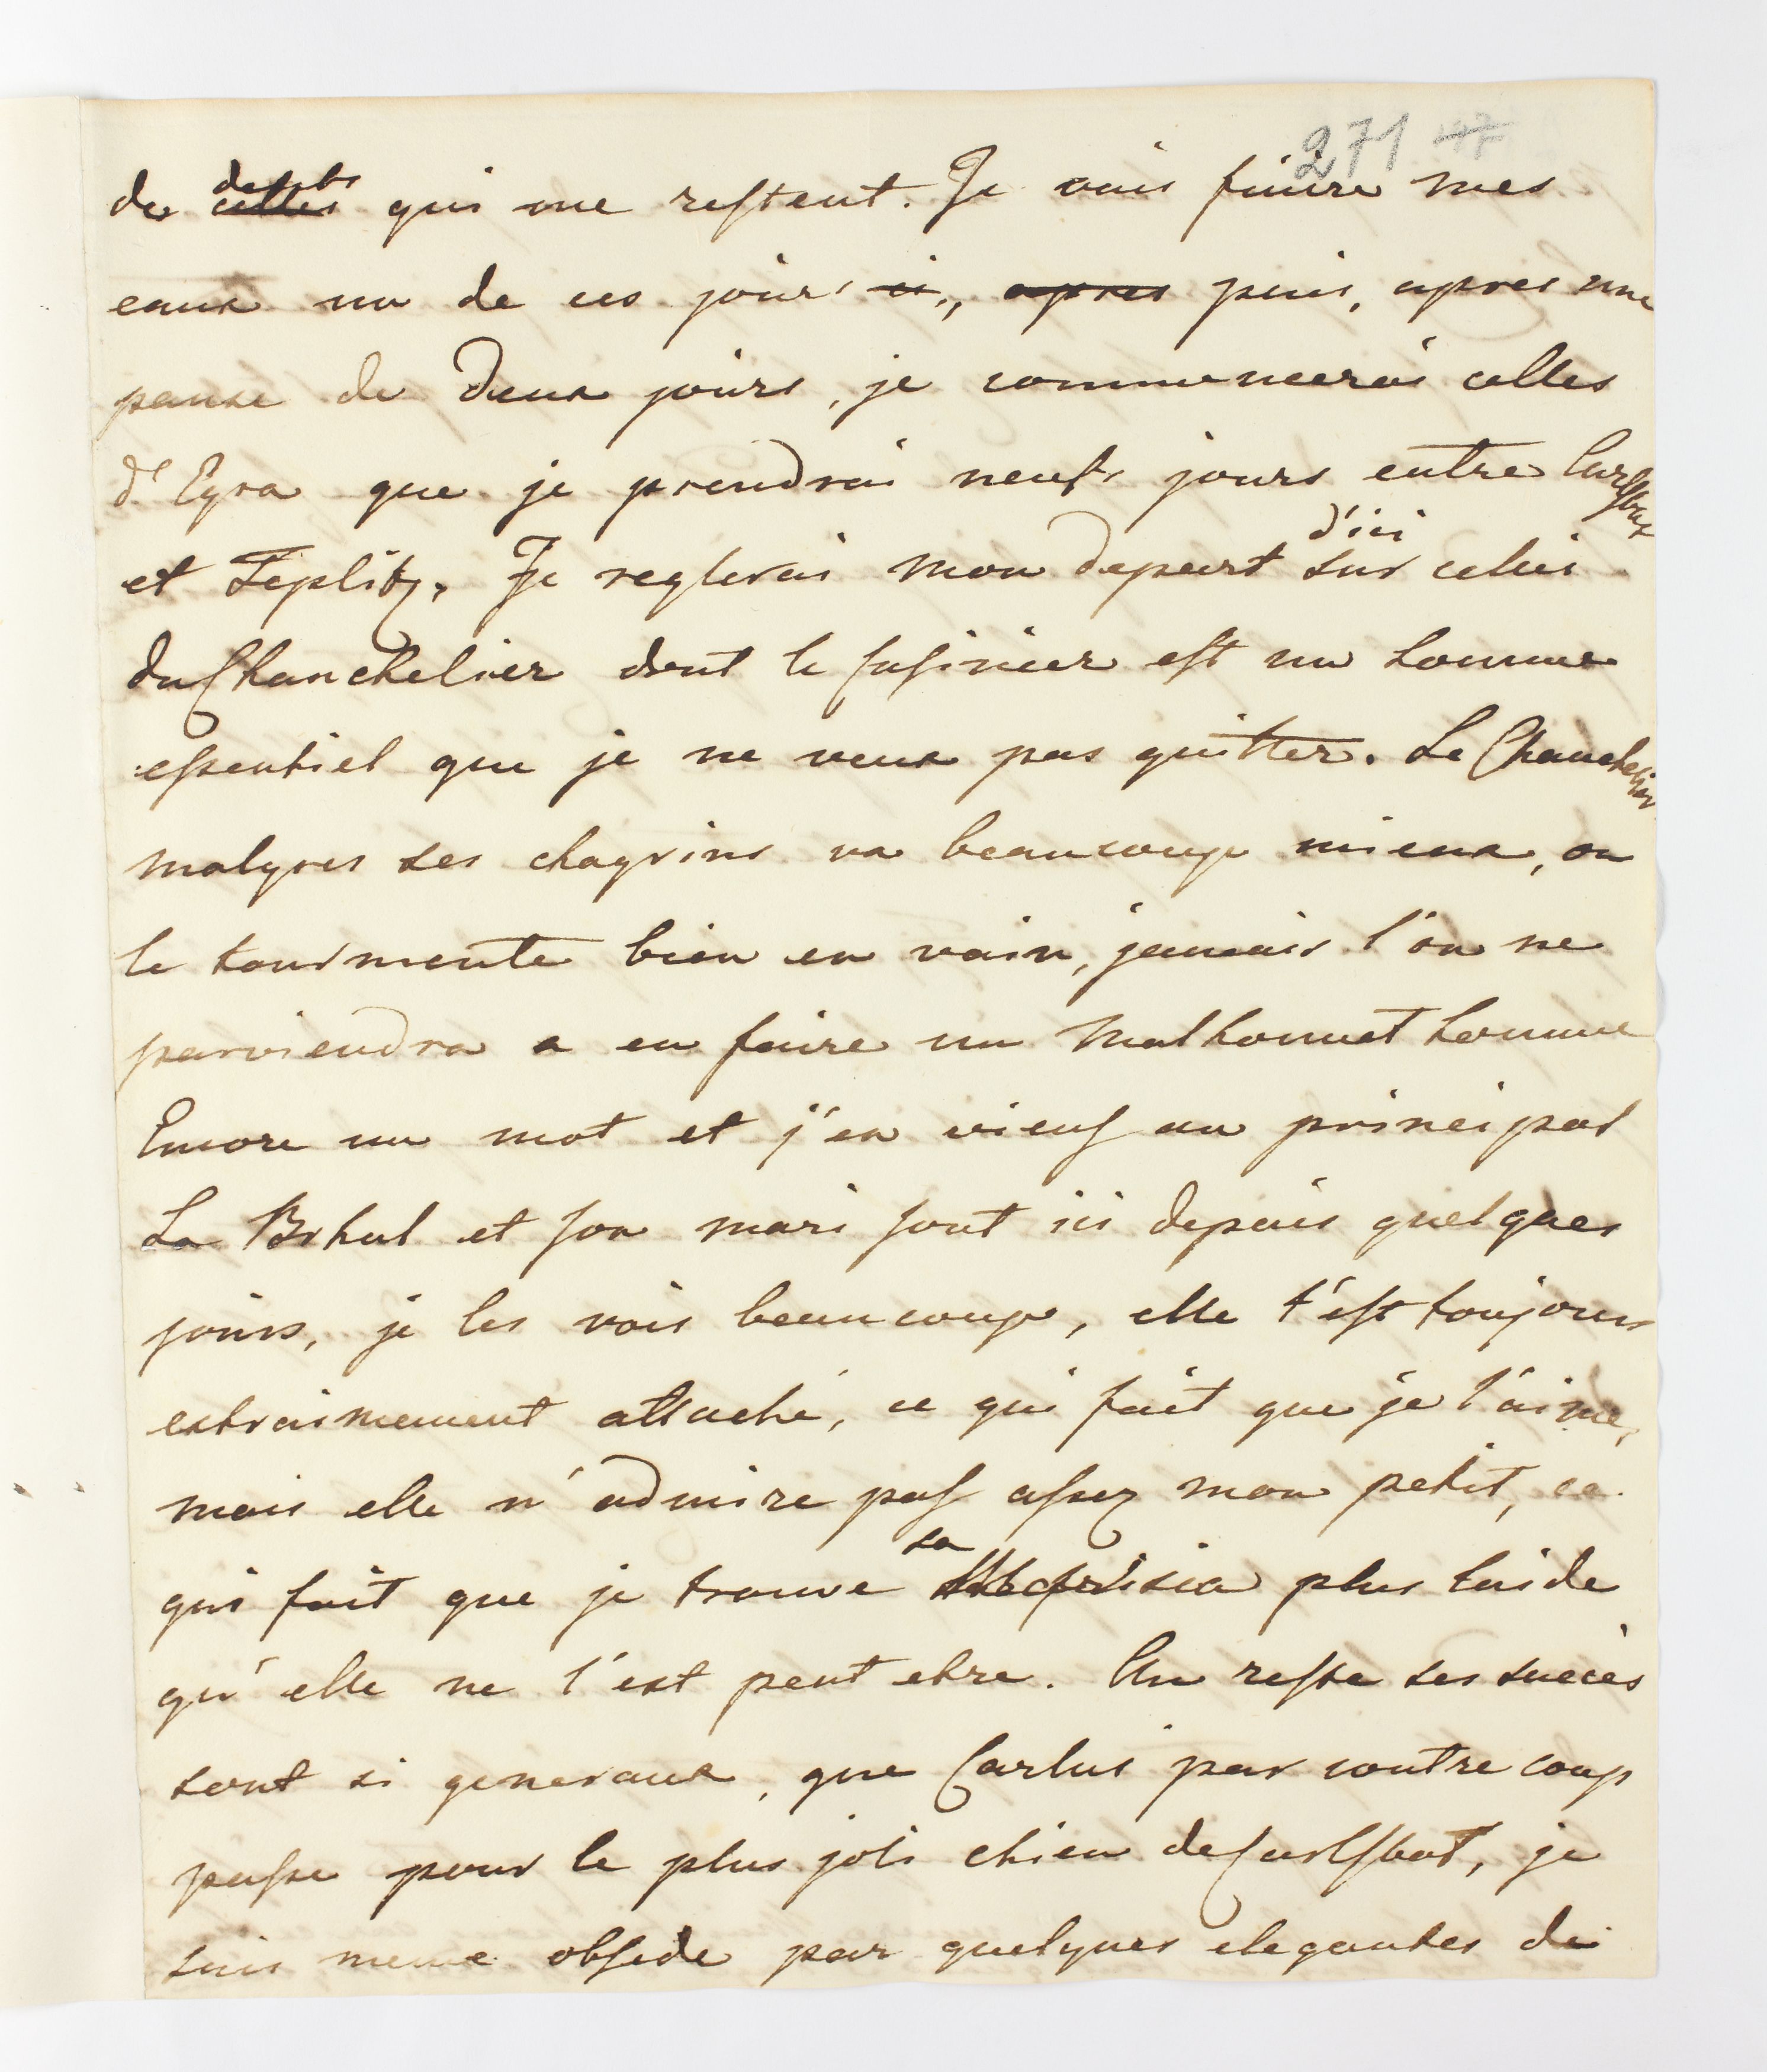 271 47
de celles dents qui me restent. Je vais finire mes
eaux un de ces jours ci, apres puis, apres une
pause de deux jours, je commencerai celles
d'Egra que je prendrai neufs jours entre Carlsbat
et Teplitz. Je reglerai mon depart d'ici sur celui
du Chanchelier dont le cusinier est un homme
essentiel que je ne veux pas quitter. Le Chanchelier
malgres ses chagrins va beaucoup mieux, on
le tourmente bien en vain, jamais l'on ne
parviendra a en faire un malhonnet homme
Encore un mot et j'en viens au principal
La Brhul et son mari sont ici depuis quelques
jours, je les vois beaucoup, elle t'est toujours
extraimement attaché, ce qui fait que je l'aime,
mais elle n'admire pas assez mon petit, ce
qui fait que je trouve sa plus laide
qu'elle ne l'est peut etre. Au reste ses succès
sont si generaux, que Carlus par contre coup
passe pour le plus joli chien de Carlsbat, je
suis meme obsede par quelques elegantes de